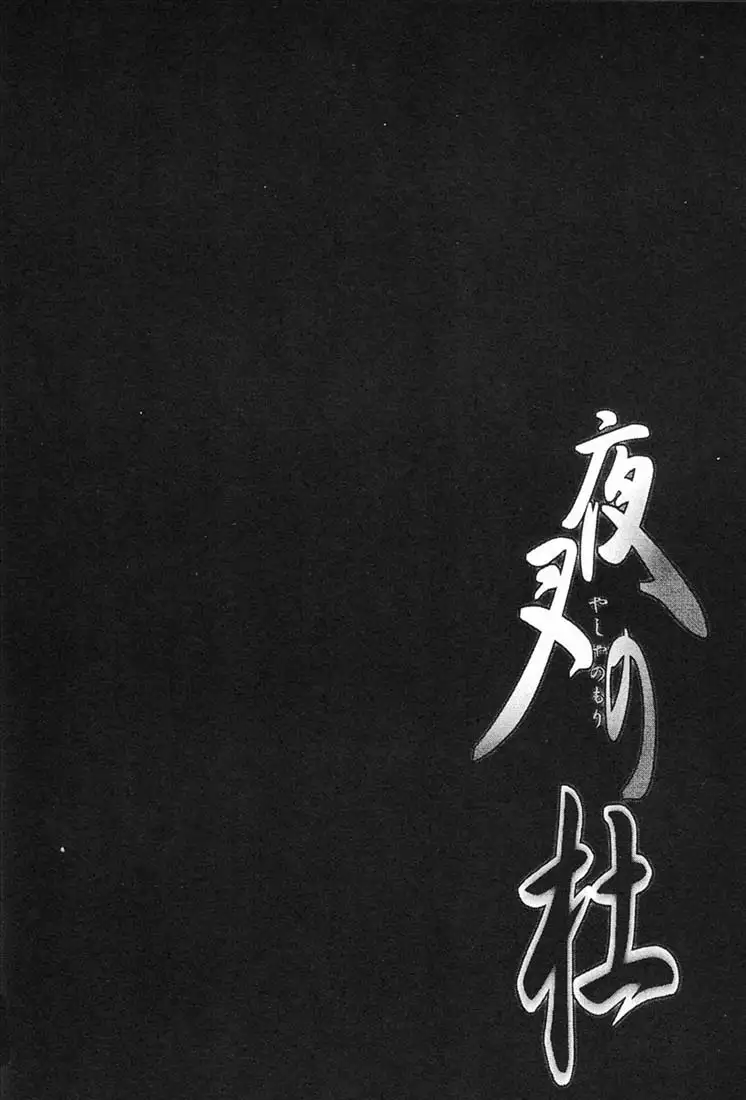 夜叉の杜
やしゃのもり